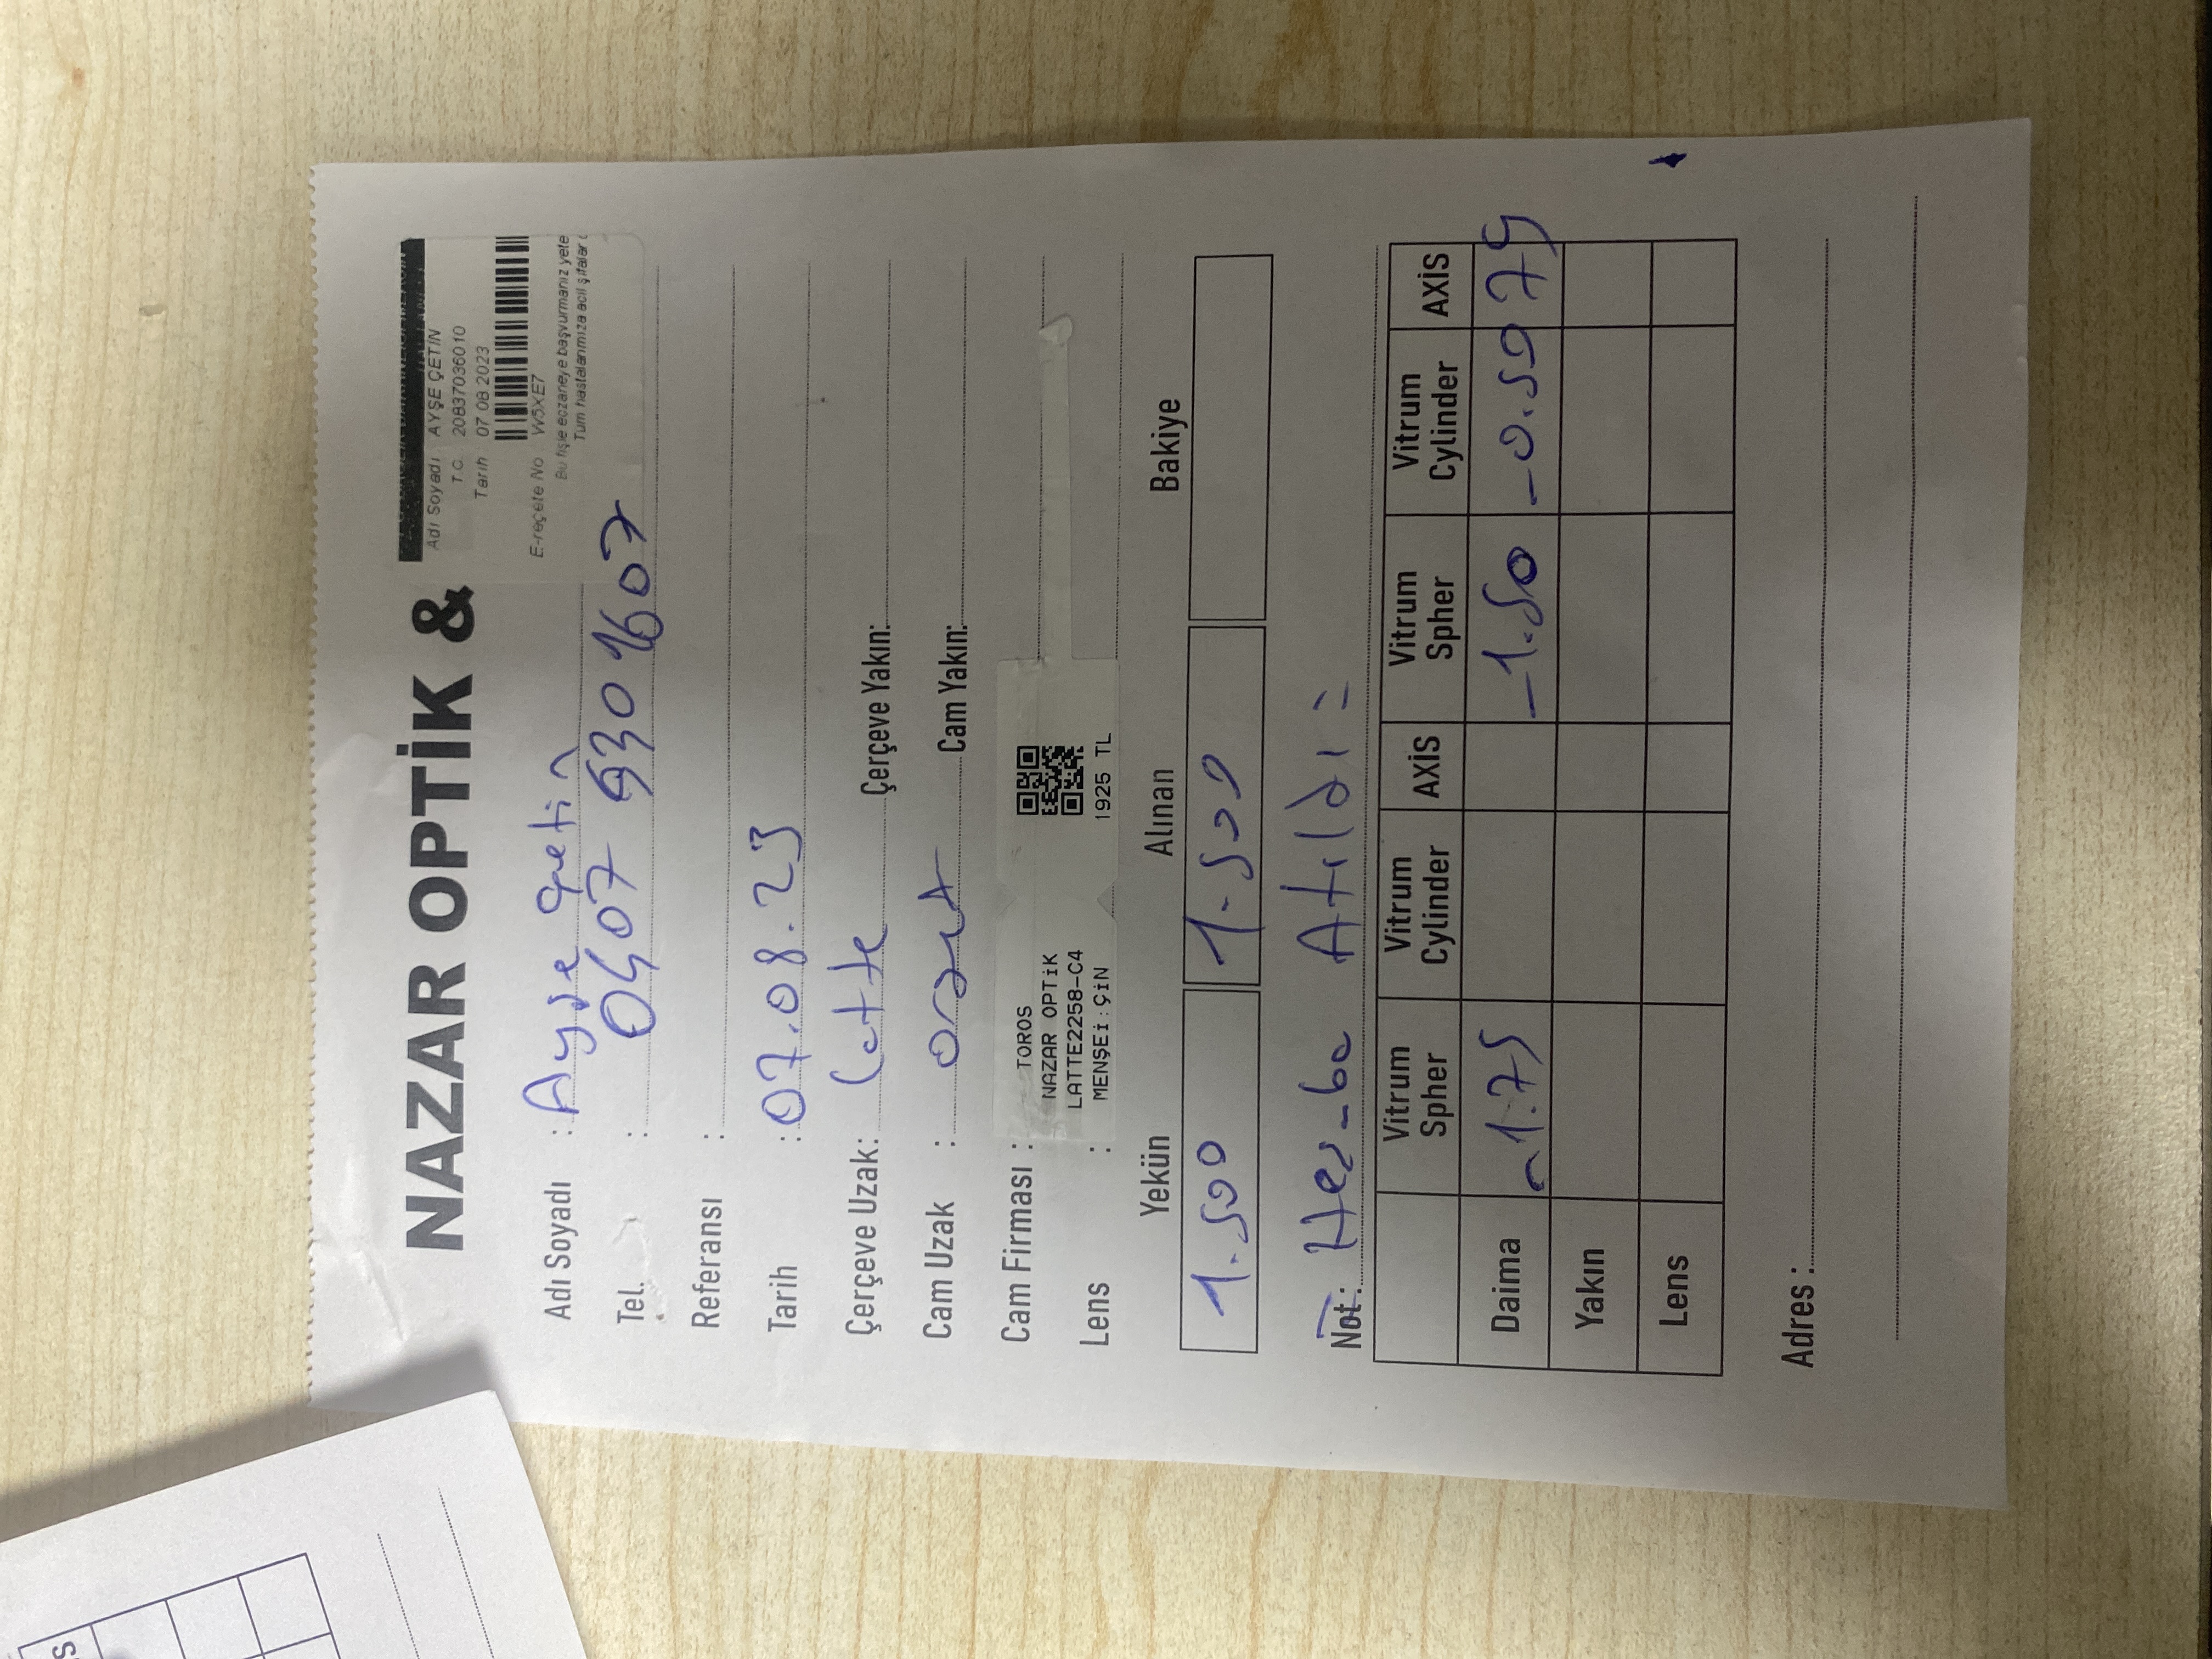 S
NAZAR OPTİK &
Adı Soyadı AYŞE ÇETİN
T.C. 20837036010
Tarih 07.08.2023
E-reçete No W5XE7
Bu fişle eczaneye başvurmanız yete
Tüm hastalarımıza acil şifalar
Adı Soyadı : Ayşe Çetin
Tel. :
Referansı :
Tarih : 07.08.23
Çerçeve Uzak: Latte Çerçeve Yakın:
Cam Uzak : Cam Yakın:
Cam Firması :
TOROS
NAZAR OPTiK
LATTE2258-C4
MENŞEi:ÇiN 1925 TL
Lens :
Yekün Alınan Bakiye
1.500 1.500
Not: Hesaba Atıldı =
Vitrum Spher Vitrum Cylinder AXİS Vitrum Spher Vitrum Cylinder AXİS
Daima -1.75 -1.50 -0.50 75
Yakın
Lens
Adres :